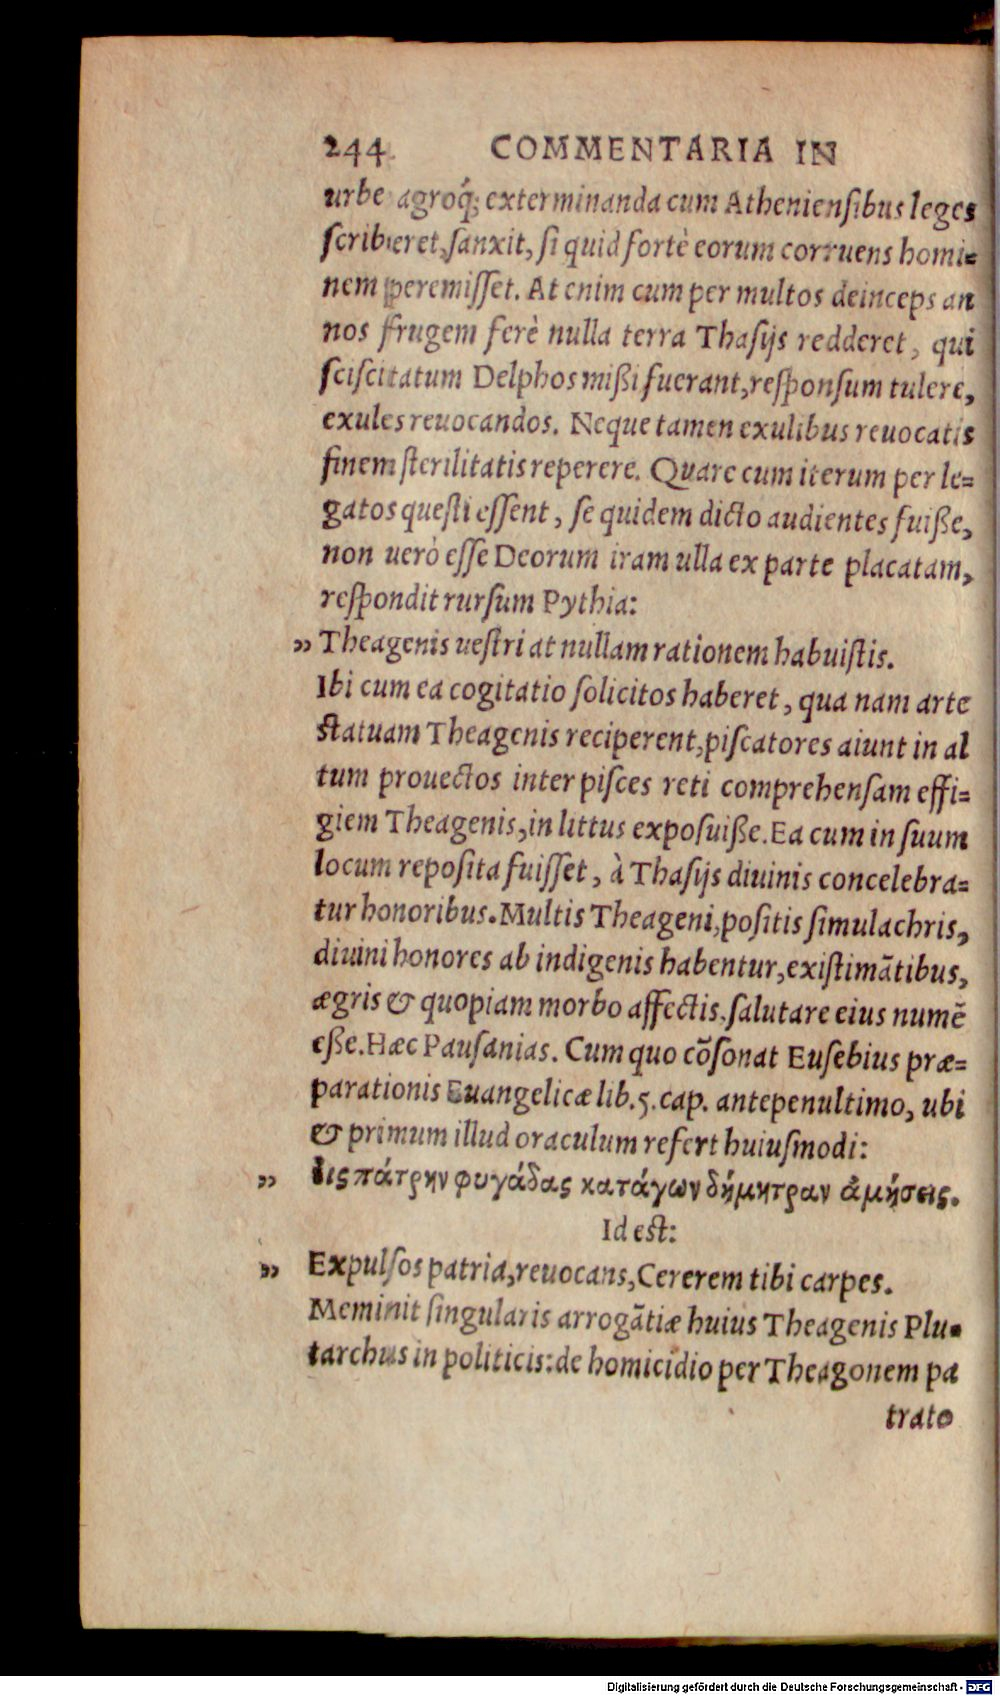 244 COMMENTARIA IN
urbe agroq́; exterminanda cum Atheniensibus leges
scriberet, sanxit, si quid fortè eorum corruens homi=
nem peremisset. At enim cum per multos deinceps an
nos frugem ferè nulla terra Thasijs redderet, qui
sciscitatum Delphos mißi fuerant, responsum tulere,
exules reuocandos. Neque tamen exulibus reuocatis
finem sterilitatis reperere. Quare cum iterum per le=
gatos questi essent, se quidem dicto audientes fuiße,
non uerò esse Deorum iram ulla ex parte placatam,
respondit rursum Pythia:
„ Theagenis uestri at nullam rationem habuistis.
Ibi cum ea cogitatio solicitos haberet, qua nam arte
statuam Theagenis reciperent, piscatores aiunt in al
tum prouectos inter pisces reti comprehensam effi=
giem Theagenis, in littus exposuiße. Ea cum in suum
locum reposita fuisset, à Thasijs diuinis concelebra=
tur honoribus. Multis Theageni, positis simulachris,
diuini honores ab indigenis habentur, existimātibus,
ægris & quopiam morbo affectis, salutare eius numē
eße. Hæc Pausanias. Cum quo cōsonat Eusebius præ=
parationis Euangelicæ lib. 5. cap. antepenultimo, ubi
& primum illud oraculum refert huiusmodi:
„ Εἰς πάτρην φυγάδας κατάγων δήμητραν ἀμήσεις.
Id est:
„ Expulsos patria, reuocans, Cererem tibi carpes.
Meminit singularis arrogātiæ huius Theagenis Plu=
tarchus in politicis: de homicidio per Theagonem pa
trato
Digitalisierung gefördert durch die Deutsche Forschungsgemeinschaft - DFG